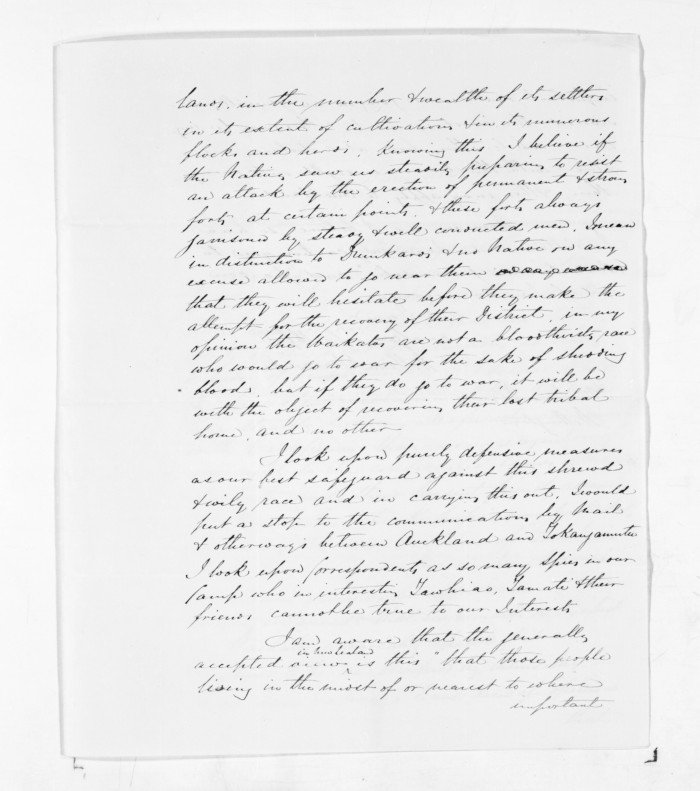 lands. in the number & wealth of its settlers
in its extent of cultivations & in its numerous
flocks and herds. Knowing this I believe if
the Natives saw us steadily preparing to resist
an attack by the erection of permanent & strong
forts at certain points. & these forts always
garrisoned by steady & well conducted men. I mean
in distinction to Drunkards & no Native on any
excuse allowed to go near them
that they will hesitate before they make the
attempt for the recovery of their District. in my
opinion the Waikatos are not a bloodthirsty race
who would go to war for the sake of shedding
blood, but if they do go to war, it will be
with the object of recovering their lost tribal
home, and no other
I look upon purely defensive measures
as our best safeguard against this shrewd
& wily race and in carrying this out, I would
put a stop to the communications by Mail
& otherways between Auckland and Tokangamutu
I look upon Correspondents as so many Spies in our
Camp who in interesting Tawhiao, Tamati & their
friends cannot be true to our Interests
I am aware that the generally
in New Zealand
accepted is this "that those people
living in the midst of or nearest to where
important